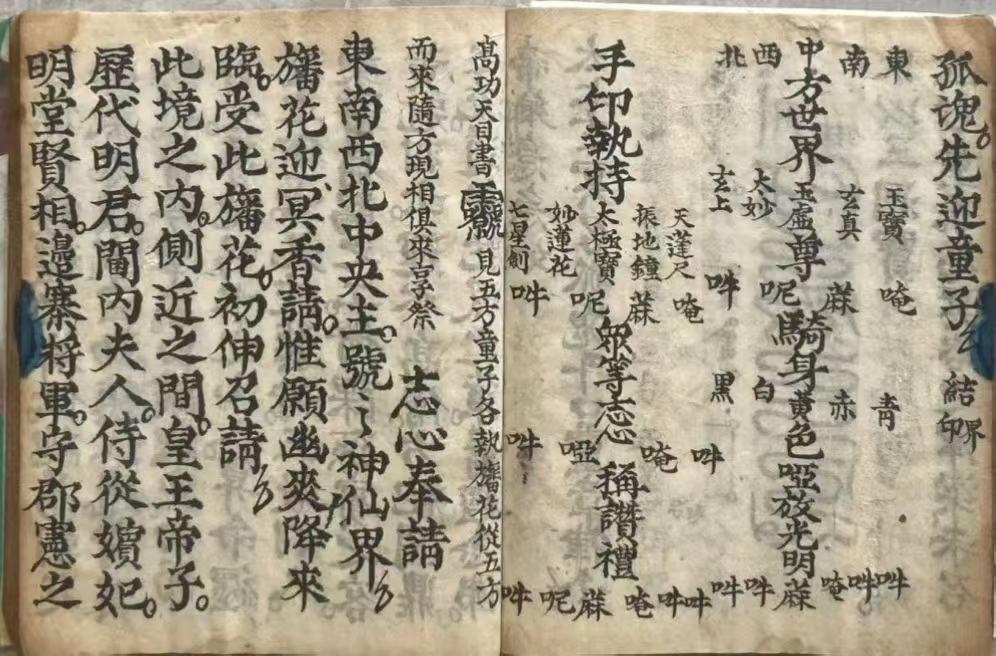 孤魂先迎童子 結界印
東 玉寶 唵 青 吽
南 玄真 蔴 赤 唵吽
中方世界玉虛尊 騎身黃色啞放光明 蔴
西 太妙 呢 白 吽
北 玄上 吽 黑 吽
天蓬尺 唵 吽 吽
振地鐘 蔴 唵 唵吽
手印執持太極寶 眾等志心 稱讚禮
妙蓮花 呢 啞 呢蔴
七星劍 吽 吽 吽
高功天目書號見五方童子各執旛花從五方
而來隨方現相俱來享祭 志心奉請
東南西北中央主。號〻神仙界
旛花迎冥香請。惟願幽爽降來
臨。受此旛花。初伸召請
此境之內。側近之間。皇王帝子。
歷代明君。閫內夫人。侍從嬪妃。
明堂賢相。邊寨將軍。守郡憲之